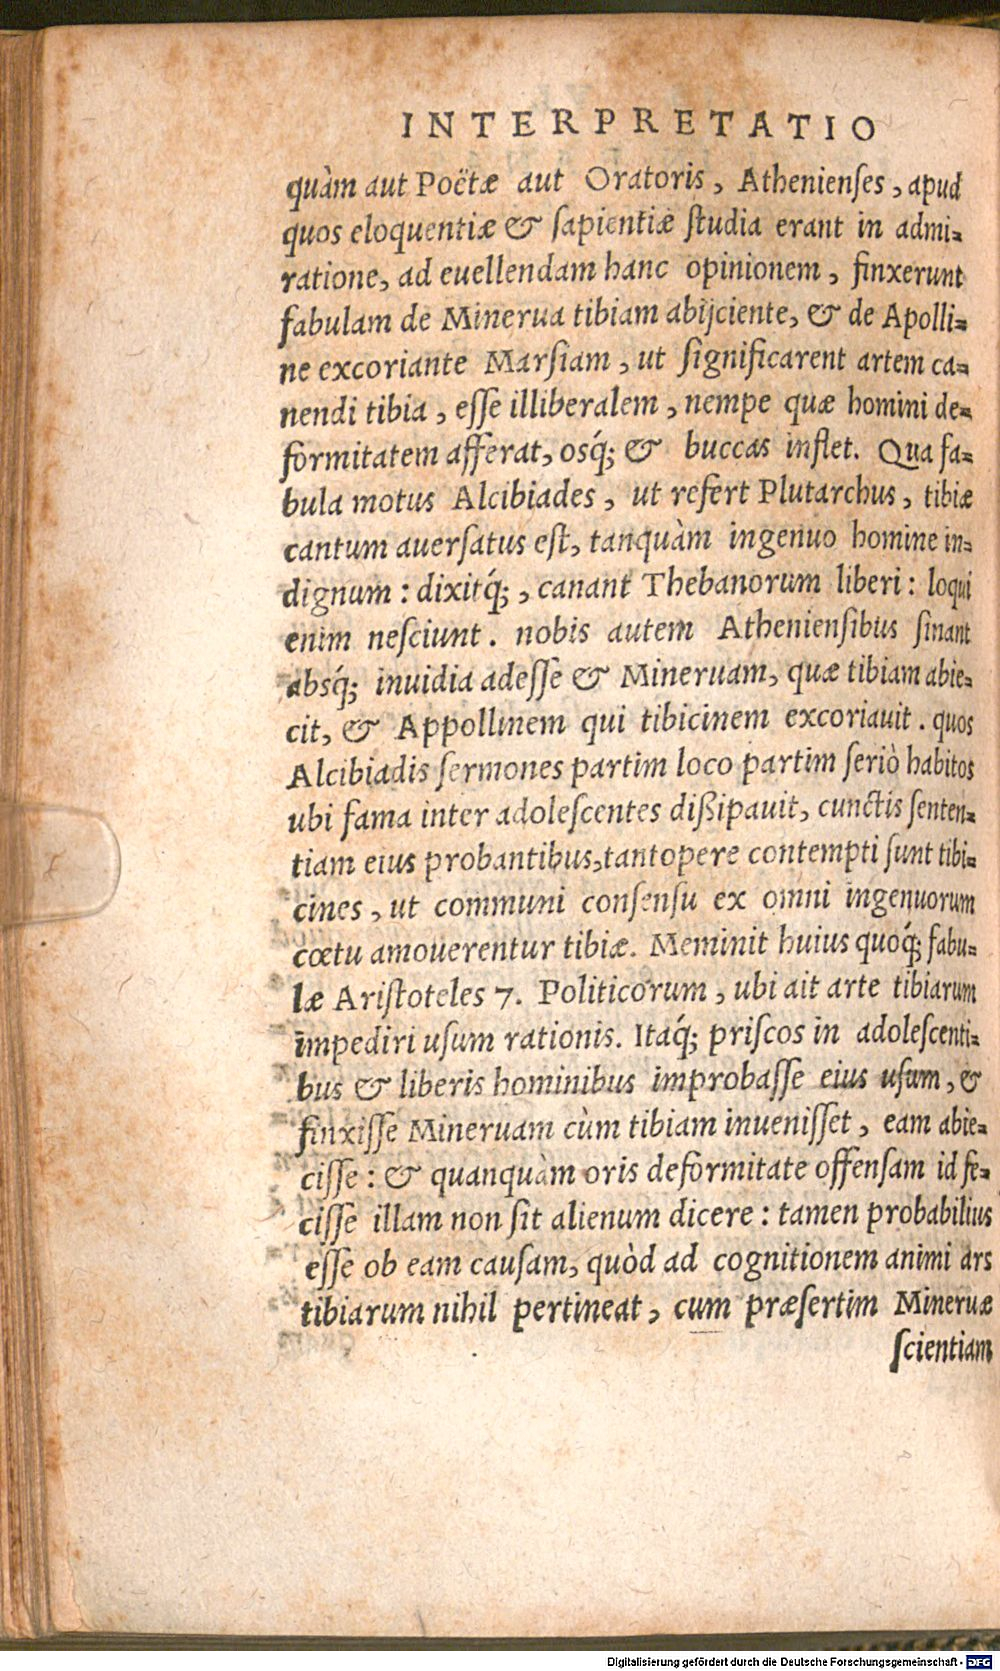 INTERPRETATIO
quàm aut Poëtæ aut Oratoris, Athenienſes, apud
quos eloquentiæ & ſapientiæ ſtudia erant in admi-
ratione, ad euellendam hanc opinionem, finxerunt
fabulam de Minerua tibiam abijciente, & de Apolli-
ne excoriante Marſiam, ut ſignificarent artem ca-
nendi tibia, eſſe illiberalem, nempe quæ homini de-
formitatem afferat, osq́; & buccas inflet. Qua fa-
bula motus Alcibiades, ut refert Plutarchus, tibiæ
cantum auerſatus eſt, tanquàm ingenuo homine in-
dignum: dixitq́;, canant Thebanorum liberi: loqui
enim neſciunt. nobis autem Athenienſibus ſinant
absq́; inuidia adeſſe & Mineruam, quæ tibiam abie-
cit, & Appollinem qui tibicinem excoriauit. quos
Alcibiadis ſermones partim loco partim ſeriò habitos
ubi fama inter adoleſcentes dißipauit, cunctis ſenten-
tiam eius probantibus, tantopere contempti ſunt tibi-
cines, ut communi conſenſu ex omni ingenuorum
cœtu amouerentur tibiæ. Meminit huius quoq́; fabu-
læ Ariſtoteles 7. Politicorum, ubi ait arte tibiarum
impediri uſum rationis. Itaq́; priſcos in adoleſcenti-
bus & liberis hominibus improbaſſe eius uſum, &
finxiſſe Mineruam cùm tibiam inueniſſet, eam abie-
ciſſe: & quanquàm oris deformitate offenſam id fe-
ciſſe illam non ſit alienum dicere: tamen probabilius
eſſe ob eam cauſam, quòd ad cognitionem animi ars
tibiarum nihil pertineat, cum præſertim Mineruæ
ſcientiam
Digitalisierung gefördert durch die Deutsche Forschungsgemeinschaft - DFG